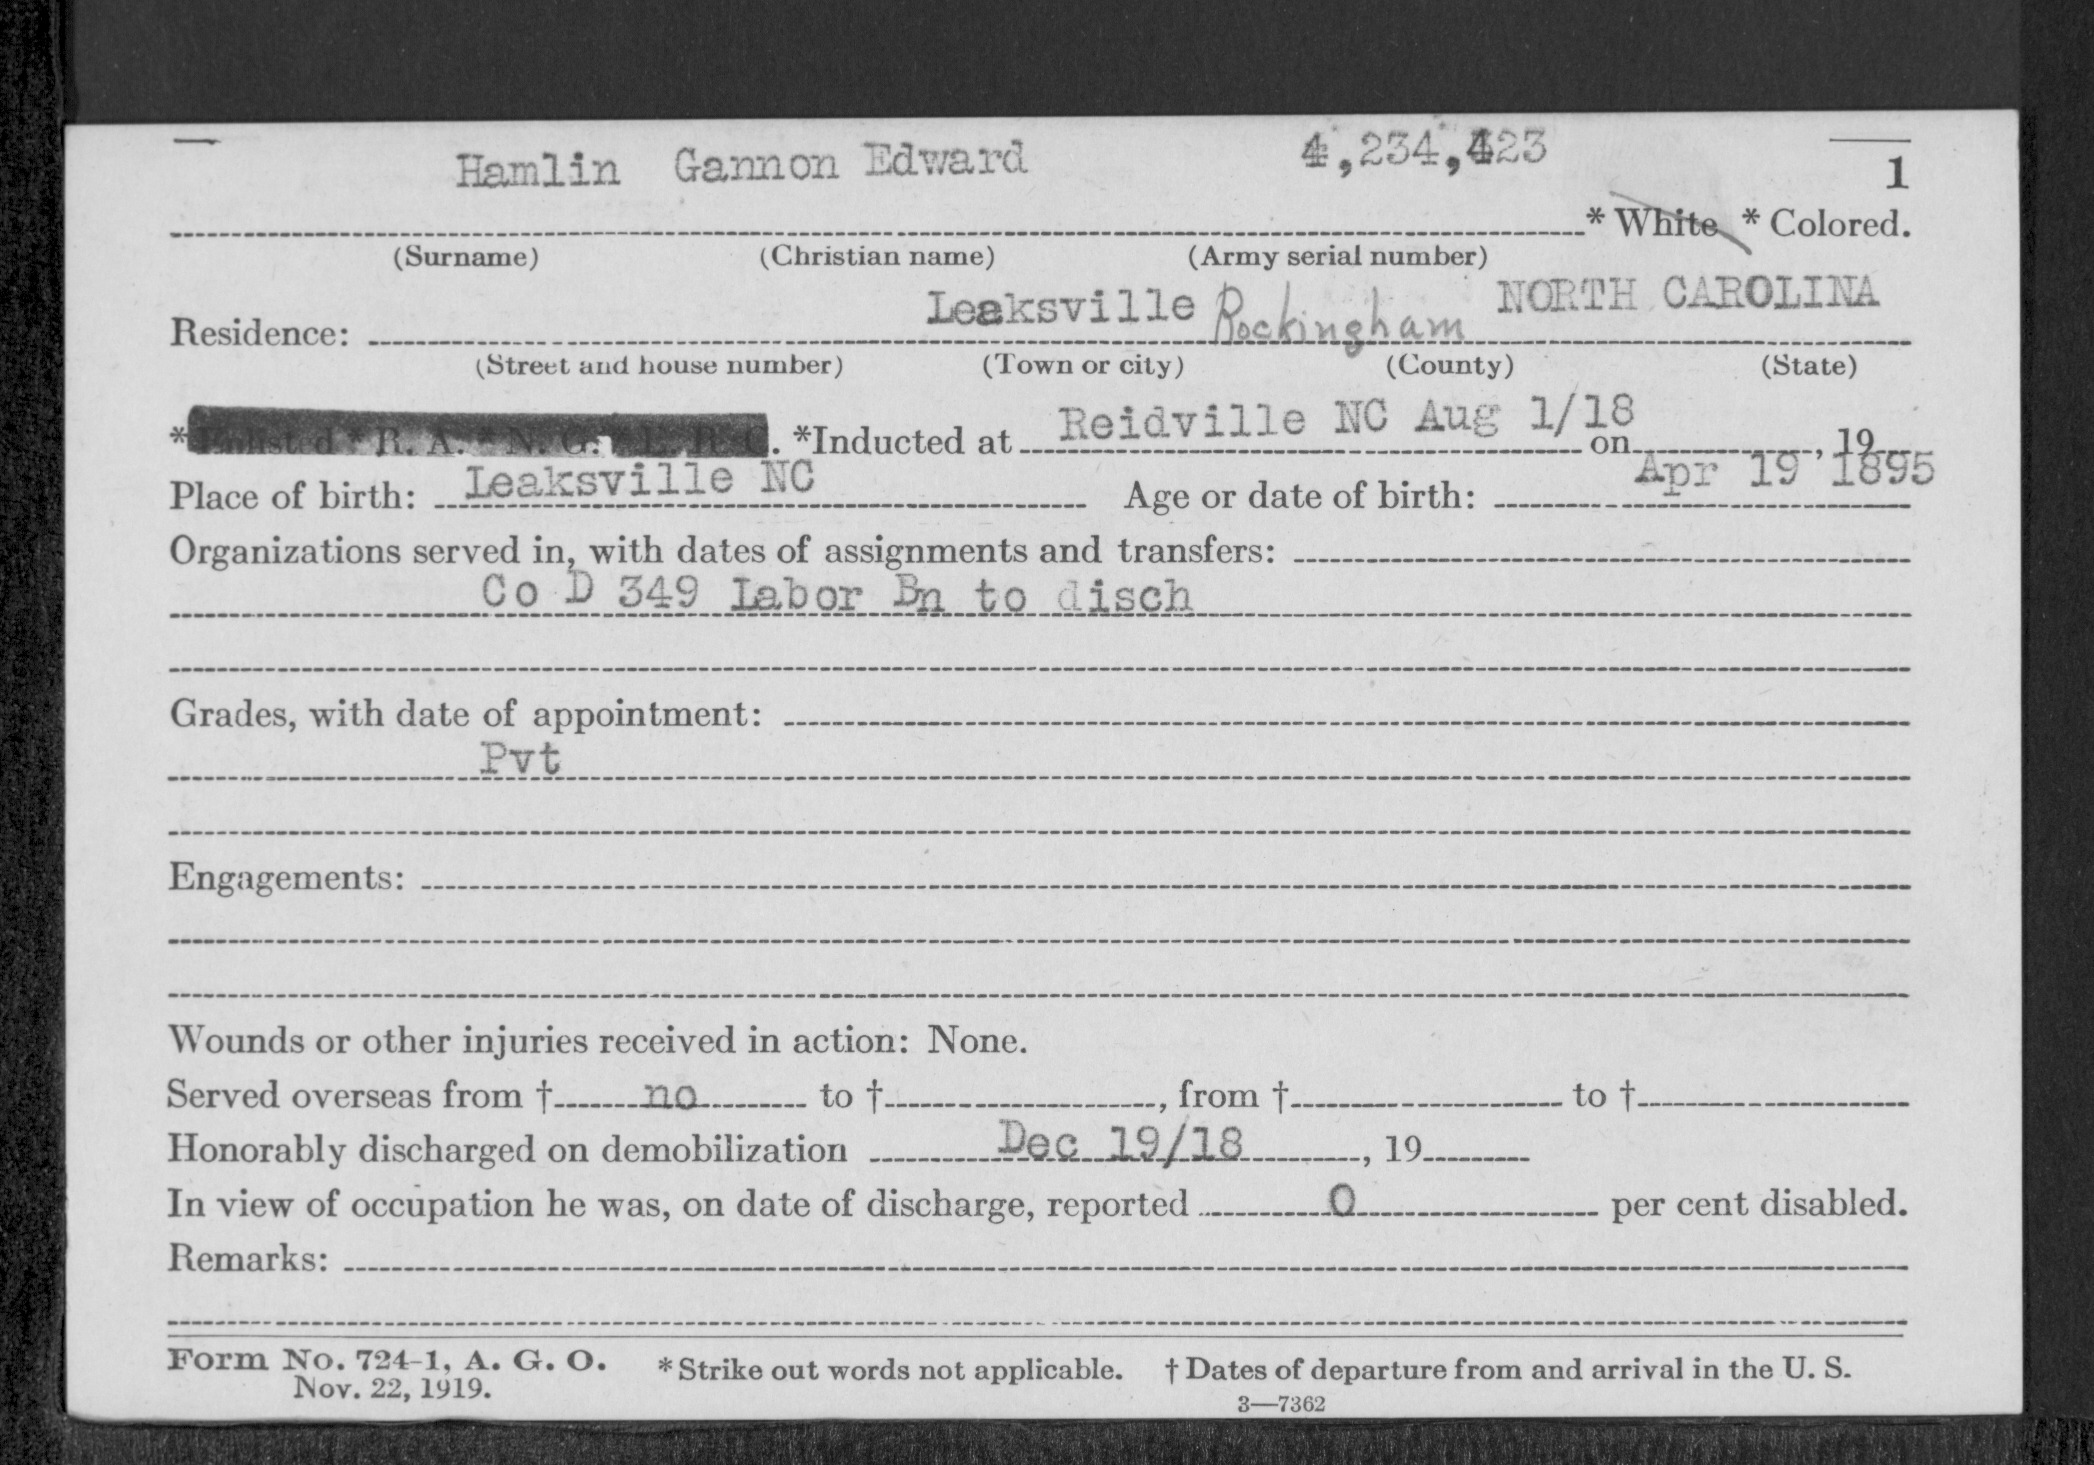 Hamlin Gannon Edward 4,234,423 1
* White * Colored.
(Surname) (Christian name) (Army serial number)
Residence: Leaksville Rockingham NORTH CAROLINA
(Street and house number) (Town or city) (County) (State)
*Enlisted * R. A. * N. G. * E. R. C. *Inducted at Reidville NC Aug 1/18 on , 19
Place of birth: Leaksville NC Age or date of birth: Apr 19 1895
Organizations served in, with dates of assignments and transfers:
Co D 349 Labor Bn to disch
Grades, with date of appointment:
Pvt
Engagements:
Wounds or other injuries received in action: None.
Served overseas from † no to † , from † to †
Honorably discharged on demobilization Dec 19/18 , 19
In view of occupation he was, on date of discharge, reported 0 per cent disabled.
Remarks:
Form No. 724-1, A. G. O. * Strike out words not applicable. † Dates of departure from and arrival in the U. S.
Nov. 22, 1919. 3—7362